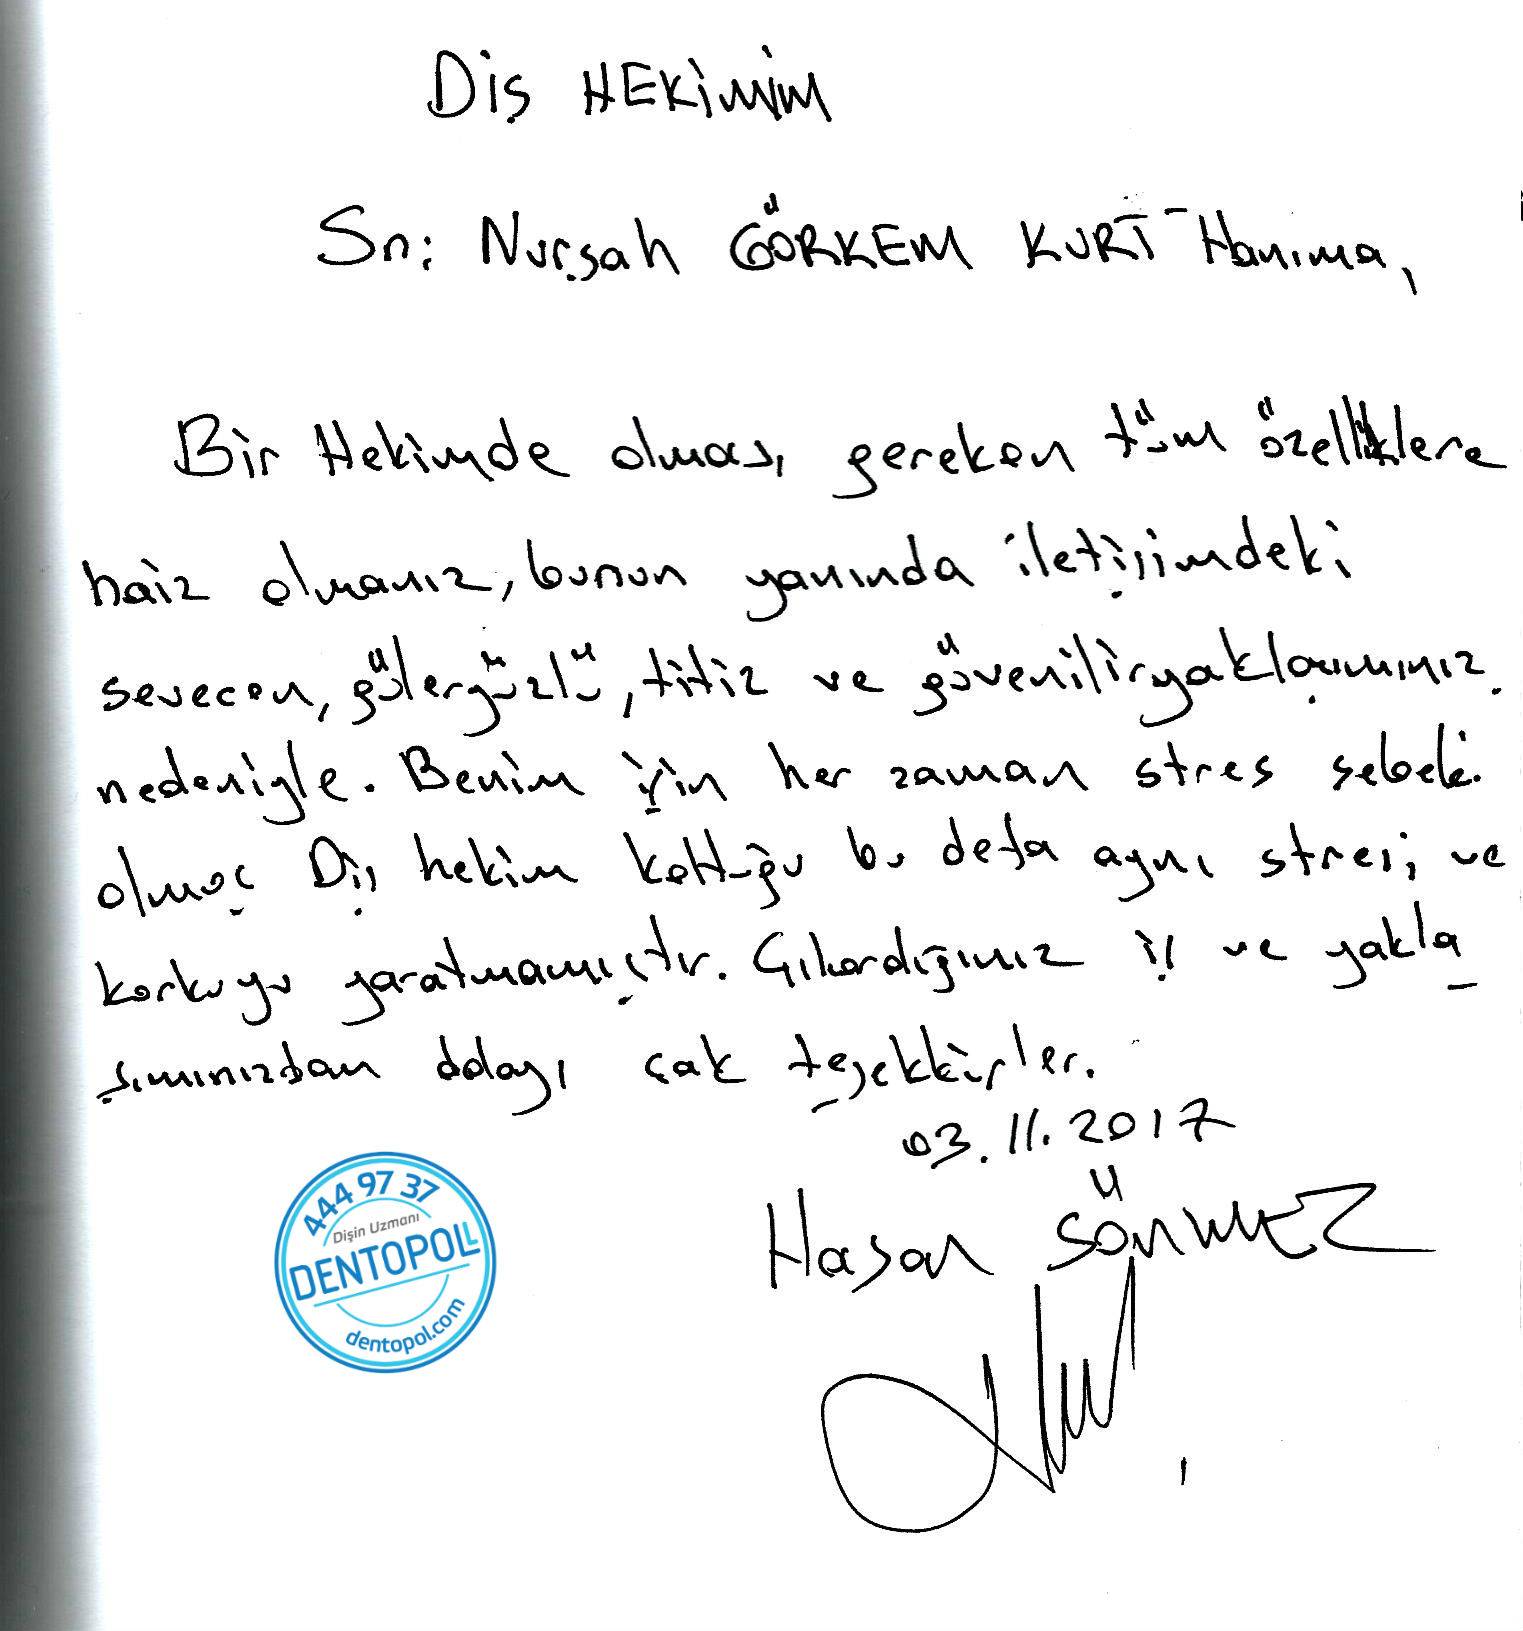 Diş HEKiMiM
Sn: Nurşah GÖRKEM KURT Hanıma,
Bir Hekimde olması gereken tüm özelliklere
haiz olmanız, bunun yanında iletişimdeki
sevecen, gülergüzlü, titiz ve güvenilir yaklaşımınız
nedeniyle. Benim için her zaman stres sebebi
olmuş Diş hekim koltuğu bu defa aynı stresi ve
korkuyu yaratmamıştır. Çıkardığınız iş ve yakla
şımınızdan dolayı çok teşekkürler.
03.11.2017
Hasan SÖNMEZ
444 97 37
Dişin Uzmanı
DENTOPOL
dentopol.com